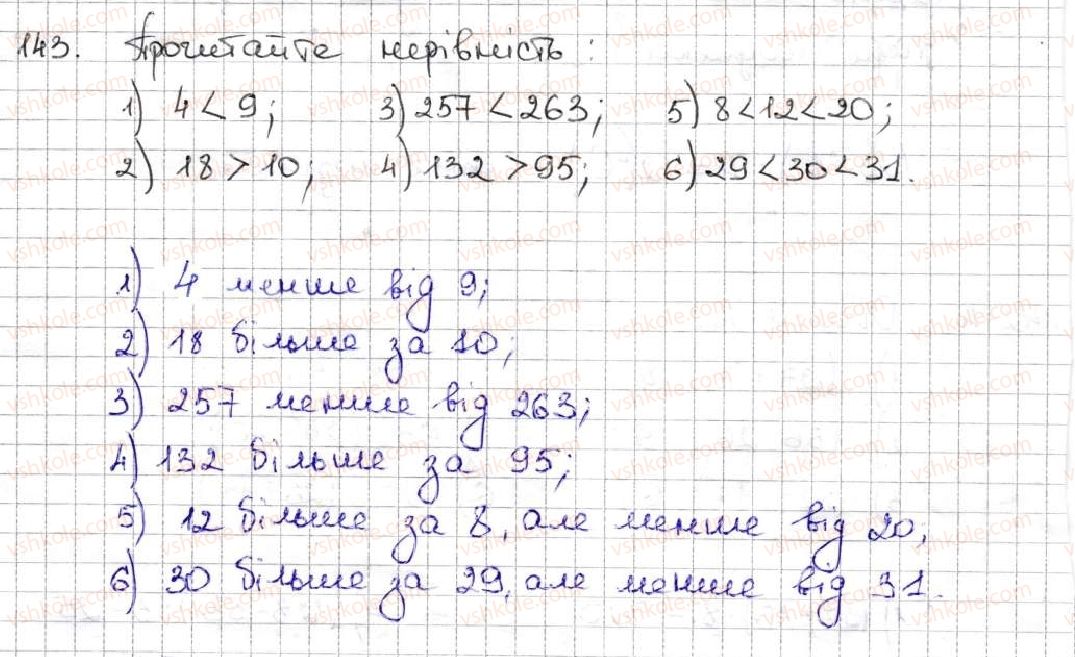 143. Прочитайте нерівність:
1) 4 < 9; 3) 257 < 263; 5) 8 < 12 < 20;
2) 18 > 10; 4) 132 > 95; 6) 29 < 30 < 31.
1) 4 менше від 9;
2) 18 більше за 10;
3) 257 менше від 263;
4) 132 більше за 95;
5) 12 більше за 8, але менше від 20;
6) 30 більше за 29, але менше від 31.
vshkole.com